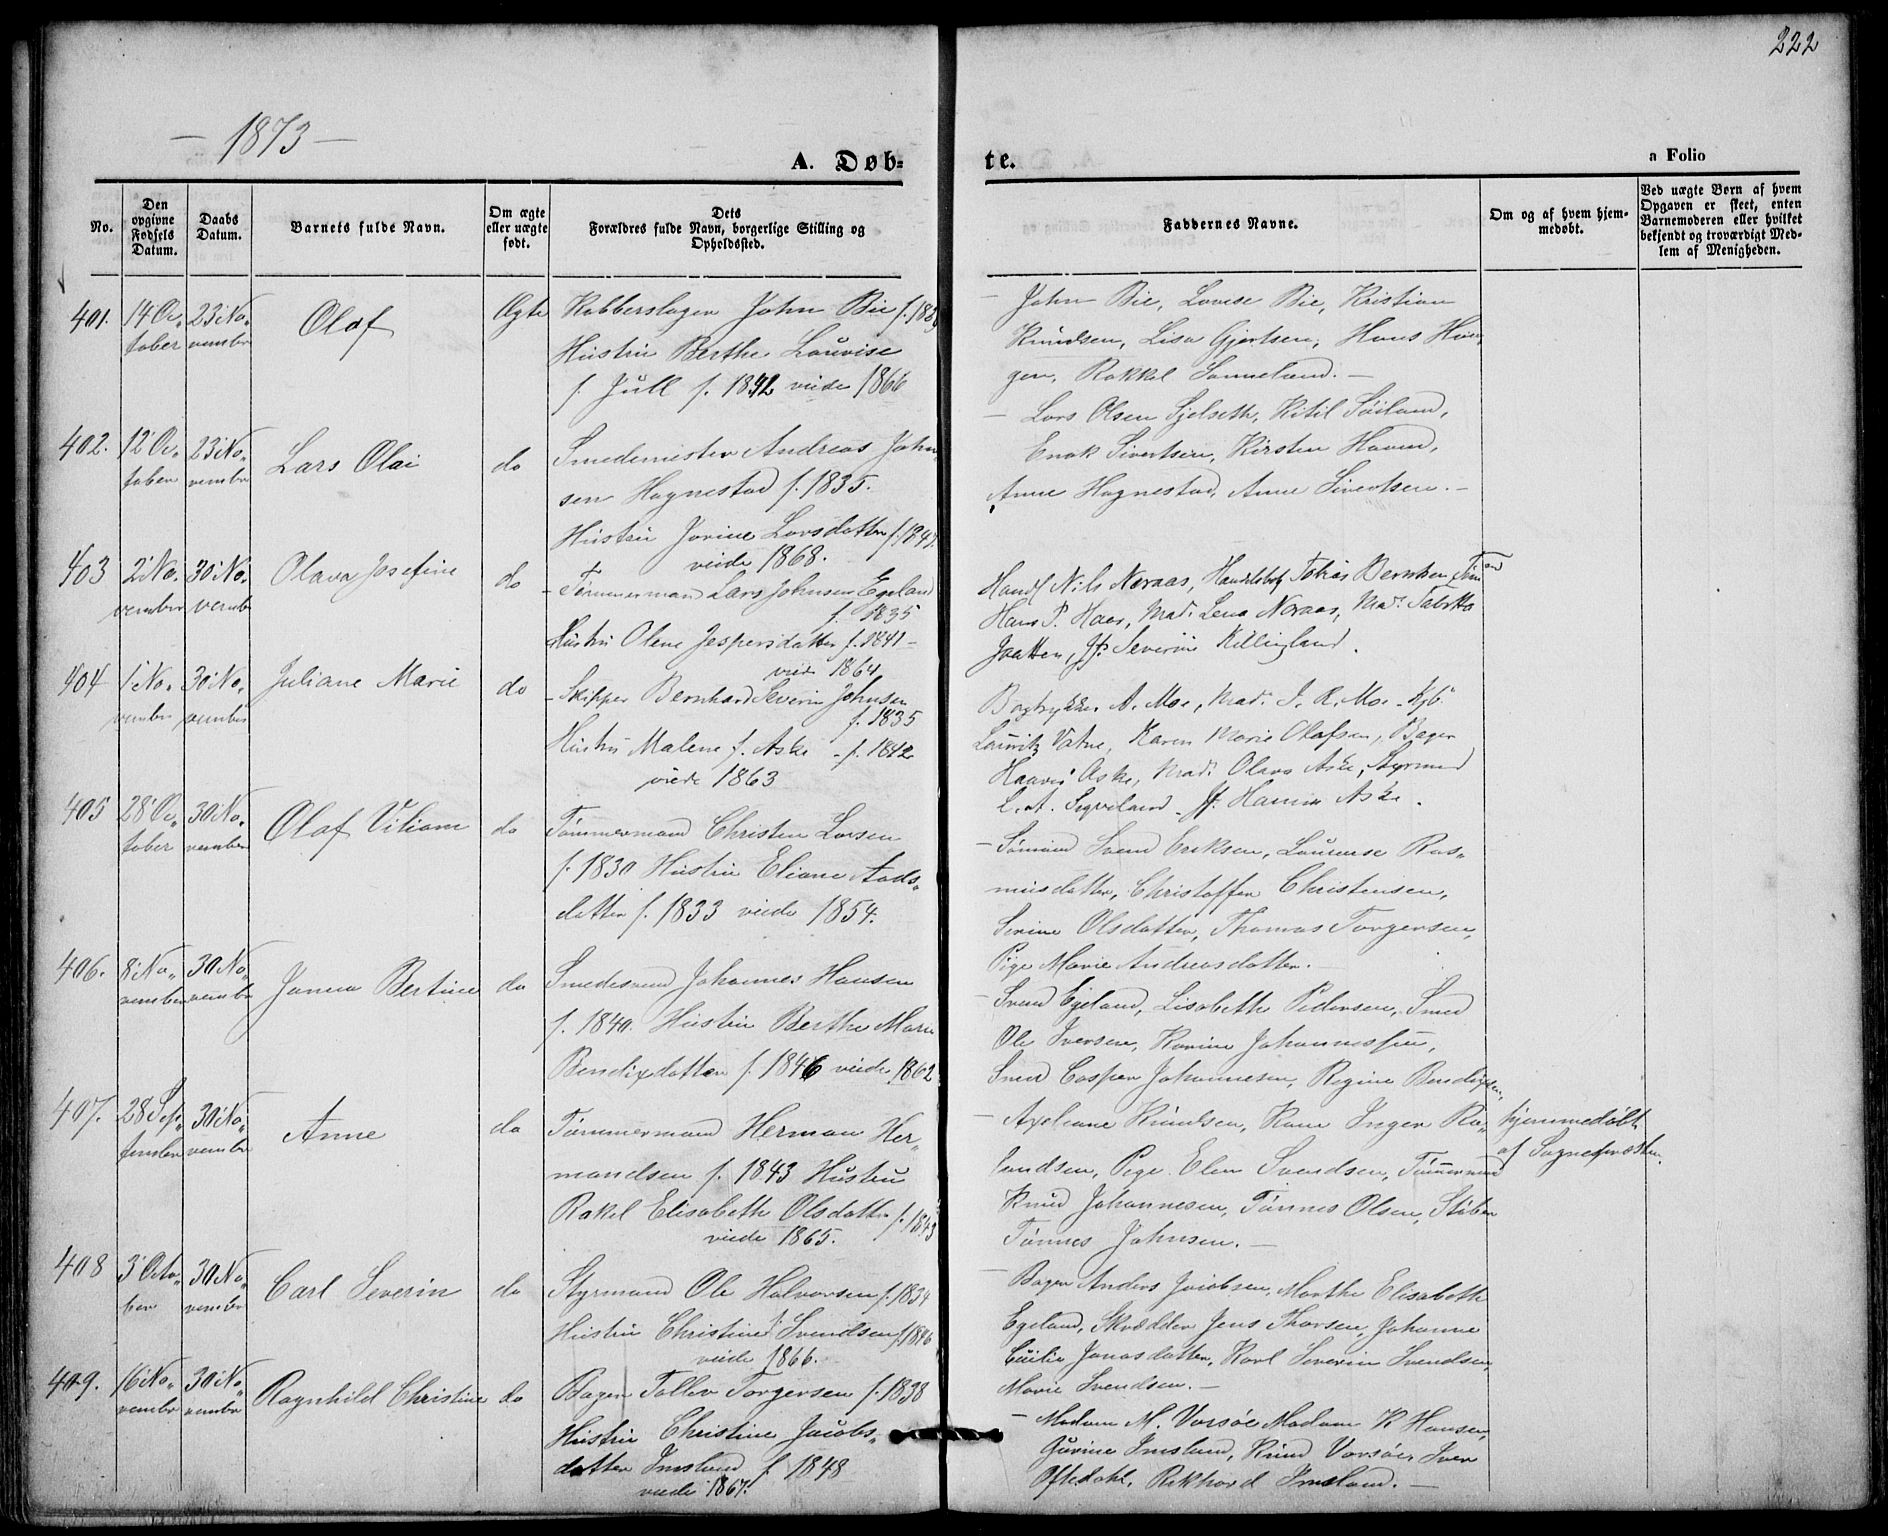 222
— 1873 —
A. Døb=
te.
a Folio
No.
Den opgivne Fødsels Datum.
Daabs Datum.
Barnets fulde Navn.
Om ægte eller uægte født.
Dets Forældres fulde Navn, borgerlige Stilling og Opholdssted.
Faddernes Navne.
Om og af hvem hjemmedøbt.
Ved uægte Børn af hvem Opgaven er skeet, enten Barnemoderen eller hvilket bekjendt og troværdigt Medlem af Menigheden.
401.
14' Oc„
tober
23' No„
vember
Olaf
Ægte
Kobberslager John Bie
Hustru Berthe Louvise
f. Jull f. 1842 viede 1866
— John Bie, Lovise Bie, Kristian
Knudsen, Lisa Gjertsen, Hans
Rakkel Sømeland. —
402.
12' Oc„
tober
23' No„
vember
Lars Olai
do
Smedemester Andreas John„
sen Hognestad f. 1835.
Hustru Jorine Larsdatter
viede 1868.
— Lars Olsen Sjelseth, Kitil
Enok Sivertsen, Kirsten
Anne Hognestad, Anne Sivertsen. —
403
2' No.
vember
30' No.
vember
Olava Josefine
do
— Tømmermand Lars Johnsen Egeland
f. 1835
Hustru Olene Jespersdatter f. 1841 —
viede 1864
Nils Noraas, Tobias Berntsen
Hans P. Haas, Mad. Lena Noraas, Mad.
Jaatten, Severin
404
1' No.
vember
30' No.
vember
Juliane Marie
do
— Skipper Bernhard Severin Johnsen
f. 1835
Hustru Malene f. Aske — f. 1842
viede 1863
Bogtrykker A. Moe, Mad. J. R. Moe
Lauritz Vatne, Karen Marie Olafsen, Bager
Aske, Mad. Olava Aske, Styrmand
L. A. Sigveland Aske.
405
28' Oc„
tober
30' No„
vember
Olaf Viliam
do
Tømmermand Christen Larsen
f. 1830 Hustru Eliane Aads„
datter f. 1833 viede 1854.
— Sømand Svend Eriksen, Laurense Ras„
musdatter, Christoffer Christensen,
Serine Olsdatter, Thomas Torgersen,
Pige Marie Andreasdatter. —
406.
8' No„
vember
30 No„
vember
Janna Bertine
do
Smedesvend Johannes Hansen
f. 1840. Hustru Berthe Marie
Bendixdatter f. 1846 viede 1862
— Svend Egeland, Lisabeth Pedersen, Smed
Ole Iversen, Karine Johannessen,
Smed Casper Johannesen, Regine Bendixsen,
407.
28 Sep„
tember
30' No„
vember
Anne
do
Tømmermand Herman Her„
mandsen f. 1843 Hustru
Rakel Elisabeth Olsdatter f. 1843
viede 1865.
— Axeliane Knudsen, Kone Inger Ro„
landsen, Pige Elen Svendsen, Tømmermand
Knud Johannesen, Tønnes Olsen, Støber
Tønnes Johnsen. —
hjemmedøbt
af Sognepræsten.
408
3' Octo„
ber
30 No„
vember
Carl Severin
do
Styrmand Ole Halvorsen f. 1834
Hustru Christine Svendsen
viede 1866.
— Bager Anders Jacobsen, Marthe Elisabeth
Egeland, Skrædder Jens Thorsen, Johanne
Cecilie Jonasdatter, Karl Severin Svendsen,
Marie Svendsen. —
409.
16' No„
vember
30 No„
vember
Ragnhild Christine
do
Bager Tollev Torgersen f. 1838
Hustru Christine Jacobs„
datter Imsland f. 1848
viede 1867.
— Madam M. Vorsøe Madam K. Hansen,
Gurine Imsland, Knud Vorsøe, Iver
Oftedahl, Rikhard Imsland. —